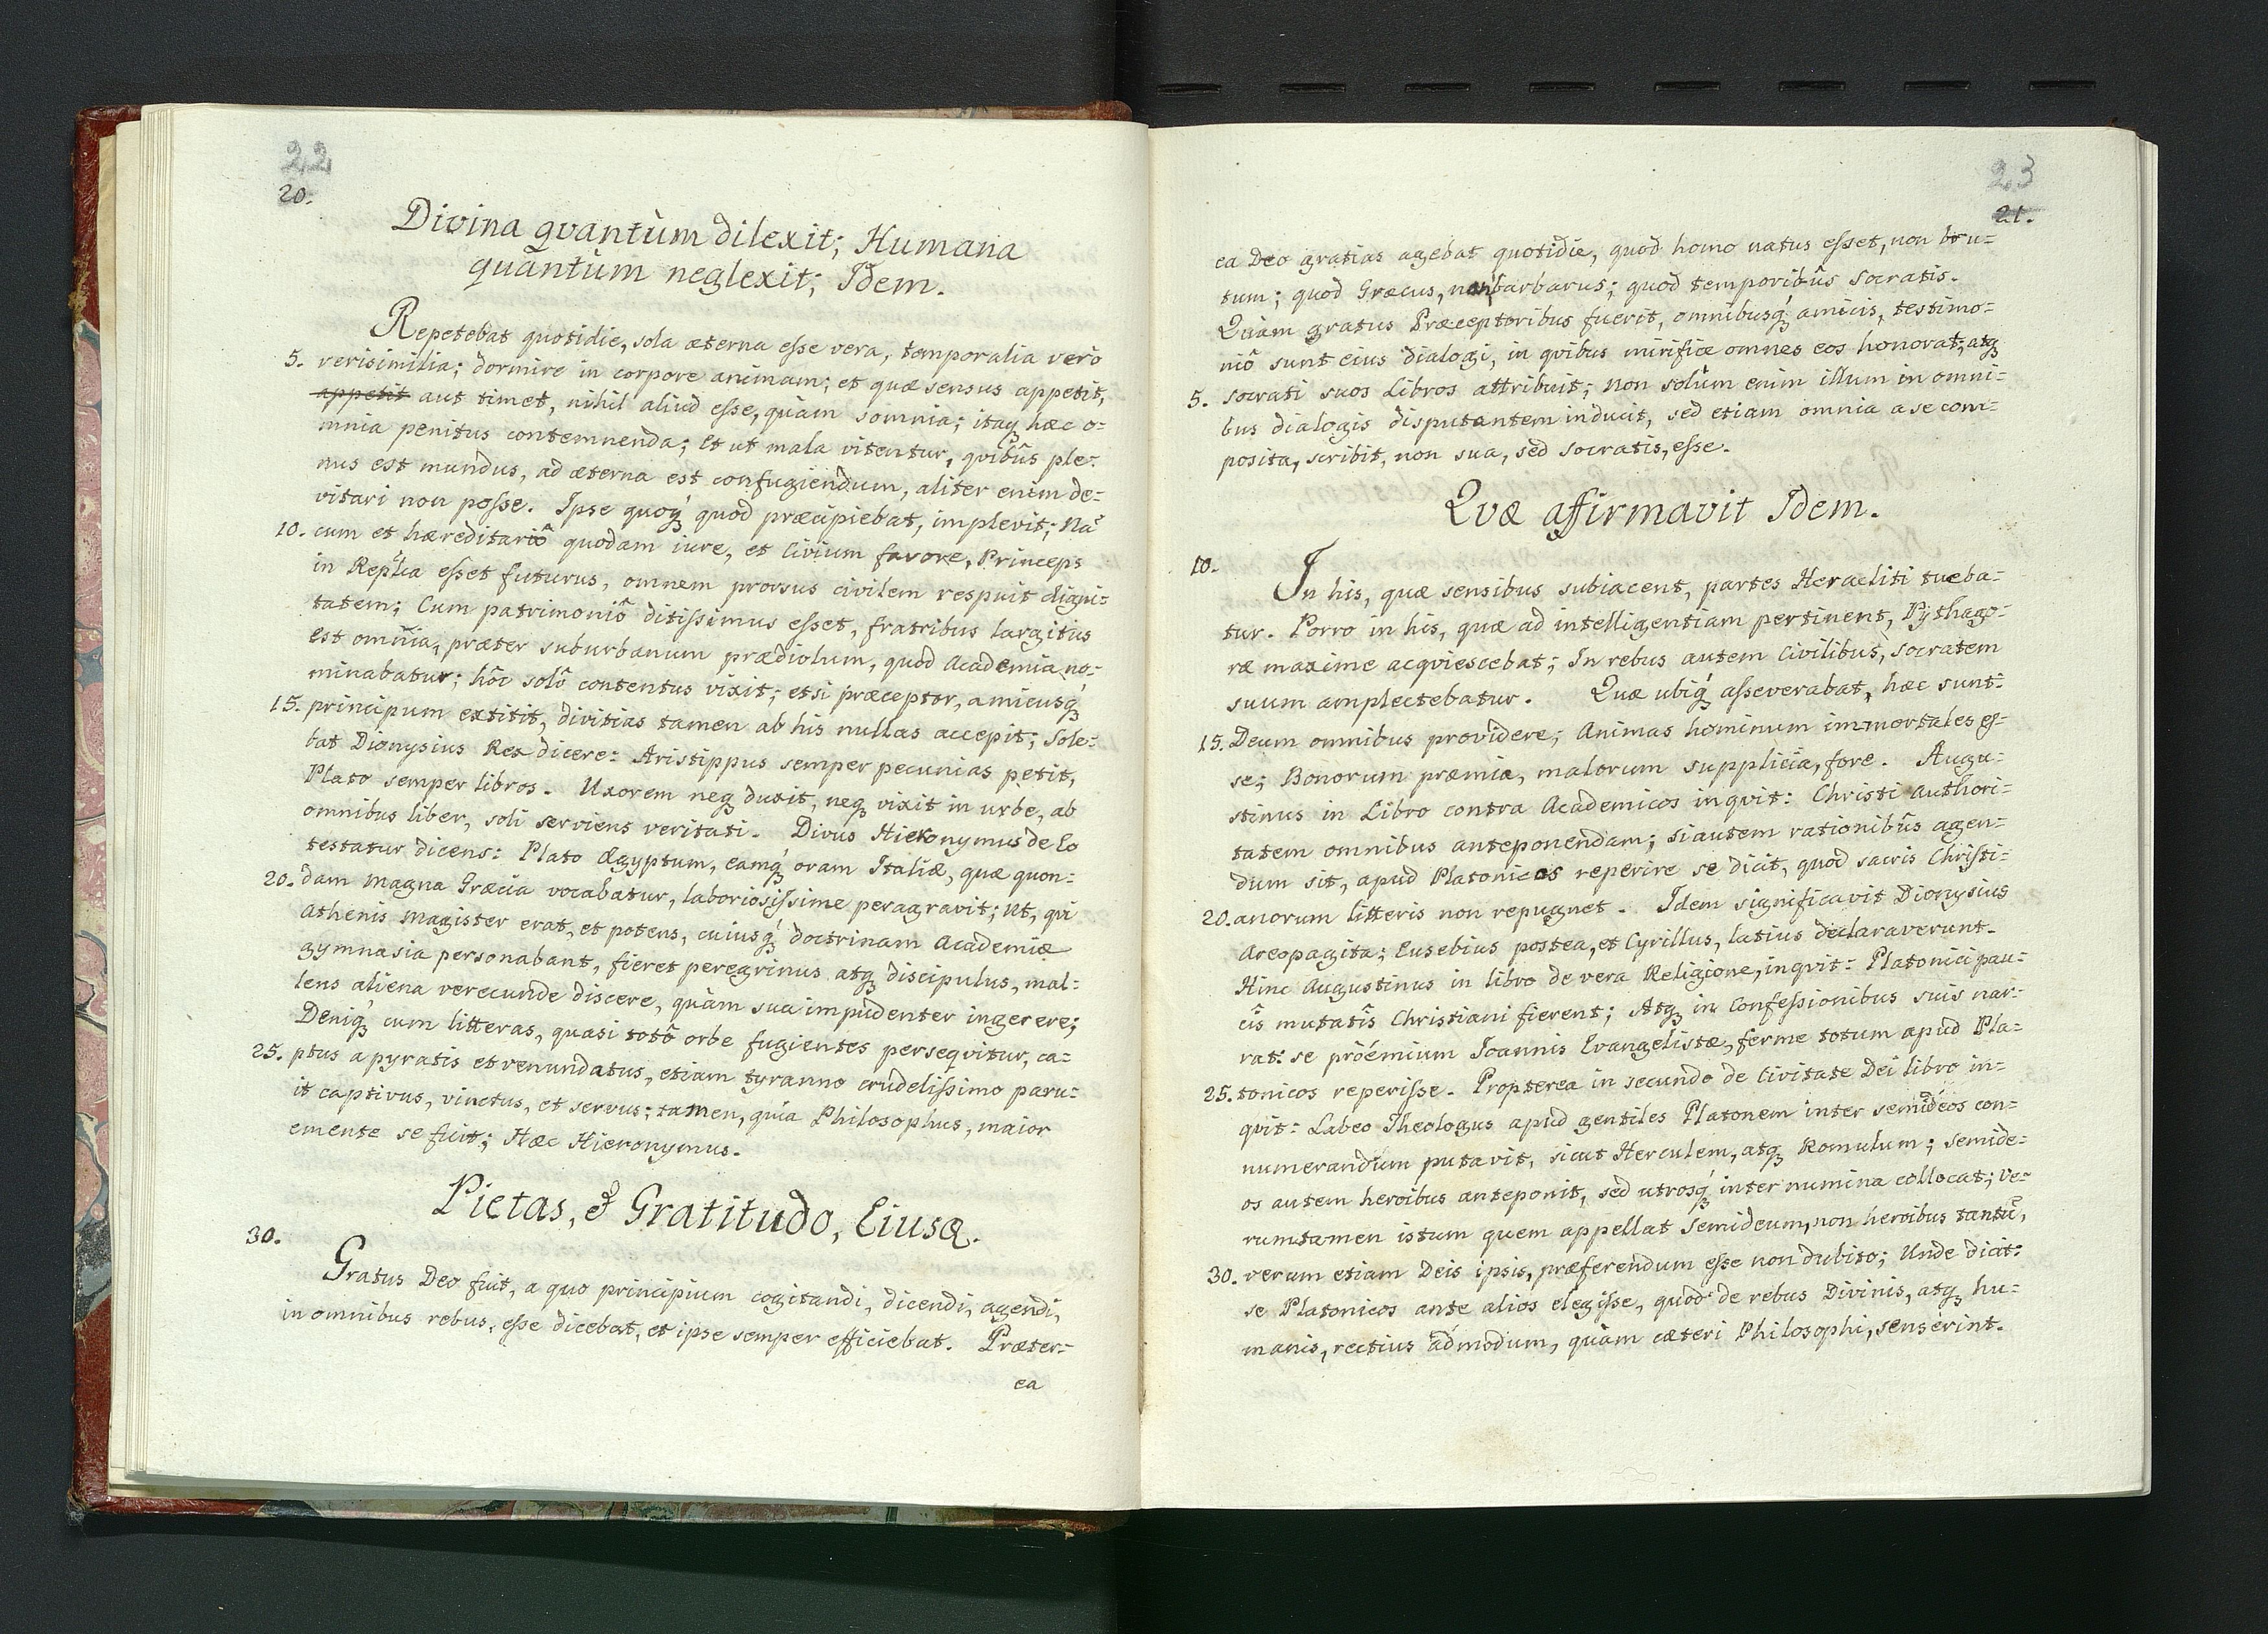 22
20.
Divina qvantùm dilexit; Humana
quantùm neglexit; Idem.
Repetebat quotidie, sola æterna esse vera, temporalia verò
5. verisimilia; dormire in corpore animam; et quæ sensus appetit,
appetit aut timet, nihil aliud esse, quàm somnia; itaq̨ hæc o=
mnia penitus contemnenda; Et ut mala vitentur, qvibûs ple=
nus est mundus, ad æterna est confugiendum, aliter enim de=
vitari non posse. Ipse quoq̨́ quod præcipiebat, implevit; Nã
10. cum et hæreditariô quodam iure, et Civium favore, Princeps
in Repl̃ca esset futurus, omnem prorsus civilem respuit digni=
tatem; Cum patrimoniô ditissimus esset, fratribus largitus
est omnia, præter suburbanum prædiolum, quod Academia no=
minabatur; hôc solô contentus vixit; etsi præceptor, amicusq̨́
15. principum extitit, divitias tamen ab his nullas accepit; Sole=
bat Dionysius Rex dicere: Aristippus semper pecunias petit,
Plato semper libros. Uxorem neq̨ duxit, neq̨ vixit in urbe, ab
omnibus liber, soli serviens veritati. Divus Hieronymus de Eo
testatur dicens: Plato Ægyptum, eamq̨́ oram Italiæ, quæ quon=
20. dam Magna Græcia vocabatur, laboriosissime peragravit; Ut, qvi
Athenis Magister erat, et potens, cuiusq̨́ doctrinam Academiæ
gymnasia personabant, fieret peregrinus atq̨ discipulus, mal=
lens aliena verecunde discere, quàm sua impudenter ingerere;
Deniq̨́ cum litteras, quasi totô orbe fugientes perseqvitur, ca=
25. ptus a pyratis et venundatus, etiam tyranno crudelissimo paru=
it captivus, vinctus, et servus; tamen, quia Philosophus, maior
emente se fuit; Hæc Hieronymus.
Pietas, & Gratitudo, Eiusd.
30.
Gratus Deo fuit, a quo principium cogitandi, dicendi, agendi,
in omnibus rebus, esse dicebat, et ipse semper efficiebat. Præter=
ea
23
21.
ea Deo gratias agebat quotidie, quod homo natus esset, non bru=
tum; quod Græcus, non barbarus; quod temporibûs Socratis.
Quàm gratus Præceptoribus fuerit, omnibusq̨́ amicis, testimo=
niô sunt eius dialogi, in qvibus mirifice omnes eos honorat, atq̨
5. Socrati suos Libros attribuit; Non solùm enim illum in omni=
bus dialogis disputantem inducit, sed etiam omnia a se com=
posita, scribit, non sua, sed Socratis, esse.
Qvæ affirmavit Idem.
10.
In his, quæ sensibus subiacent, partes Heracliti tueba=
tur. Porro in his, quæ ad intelligentiam pertinent, Pythago=
ræ maxime acqviescebat; In rebus autem Civilibus, Socratem
suum amplectebatur. Quæ ubiq̨́ asseverabat, hæc sunt:
15. Deum omnibus providere; Animas hominum immortales es=
se; Bonorum præmia, malorum supplicia, fore. Augu=
stinus in Libro contra Academicos inqvit: Christi Authori=
tatem omnibus anteponendam; Si autem rationibûs agen=
dum sit, apud Platonicos reperire se dicit, quod sacris Christi=
20. anorum litteris non repugnet. Idem significavit Dionysius
Areopagita; Eusebius postea, et Cyrillus, latius declaraverunt.
Hinc Augustinus in libro de vera Religione, inqvit: Platonici pau=
cîs mutatîs Christiani fierent; Atq̨ in Confessionibus suis nar=
rat: se proémium Ioannis Evangelistæ, ferme totum apud Pla=
25. tonicos reperisse. Propterea in secundo de Civitate Dei libro in=
qvit: Labeo Theologus apud gentiles Platonem inter semideos con=
numerandum putavit, sicut Herculem, atq̨ Romulum; semide=
os autem heroibus anteponit, sed utrosq̨́ inter numina collocat; Ve=
rumtamen istum quem appellat Semideum, non heroibus tantũ,
30. verum etiam Deis ipsis, præferendum esse non dubito; Unde dicit:
se Platonicos ante alios elegisse, quod de rebus Divinis, atq̨ hu=
manis, rectius admodum, quàm cæteri Philosophi, senserint.